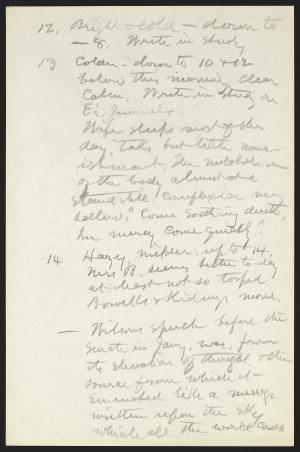 12. Bright & cold – down to
– 8. Write in study
13 Colder – down to 10 & 12
below this morning, clear
Calm. Write in Study on
E's Journals.
Wife sleeps most of the
day, talks but little nour-
ishment. The metabolism
of the body almost at a
stand still. Complexion very
sallow. "Come soothing death,
In mercy come quickly."
14 Hazy, milder, up to 14.
Mrs B. seems better to-day
at least not so torpid.
Bowells & Kidneys move.
— Wilsons speech before the
Senate in Jany, was, from
its elevation of thought & the
source from which it
emanated like a message
written upon the sky
which all the world could